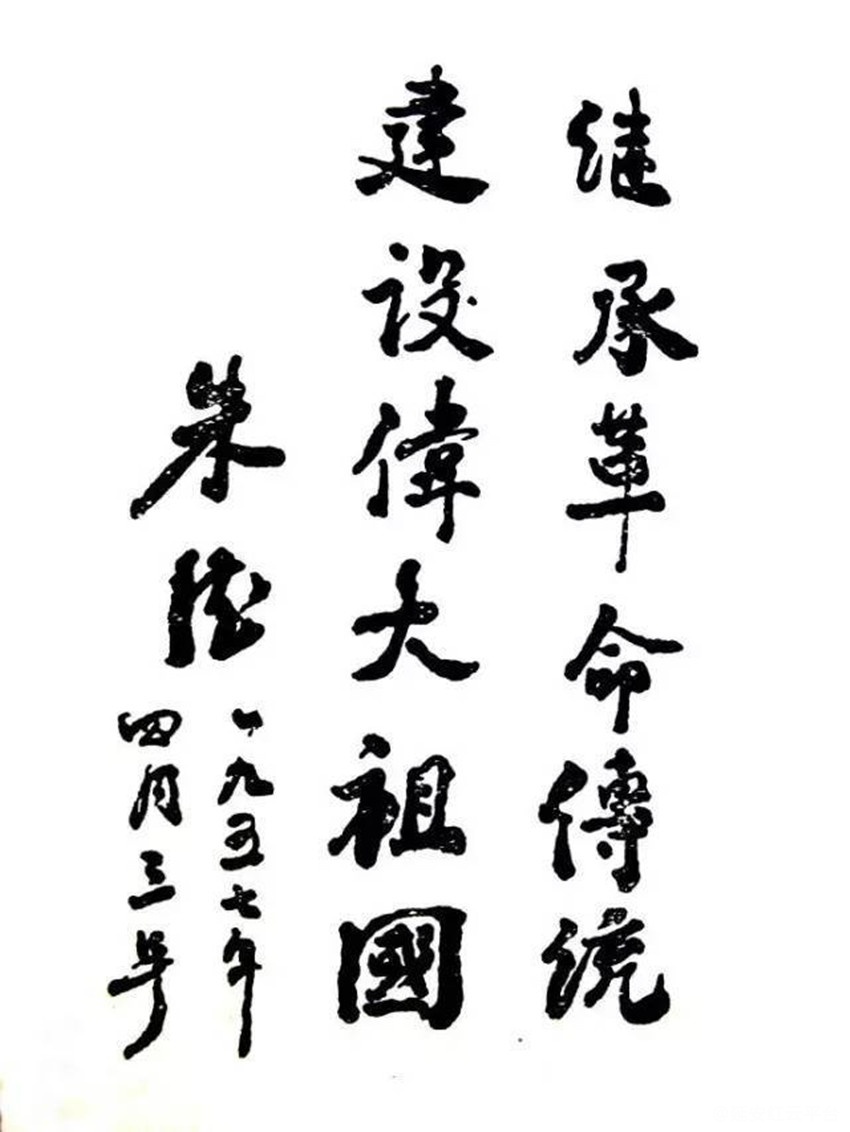 继承革命傳統
建设偉大祖國
朱德
一九五七年
四月三号